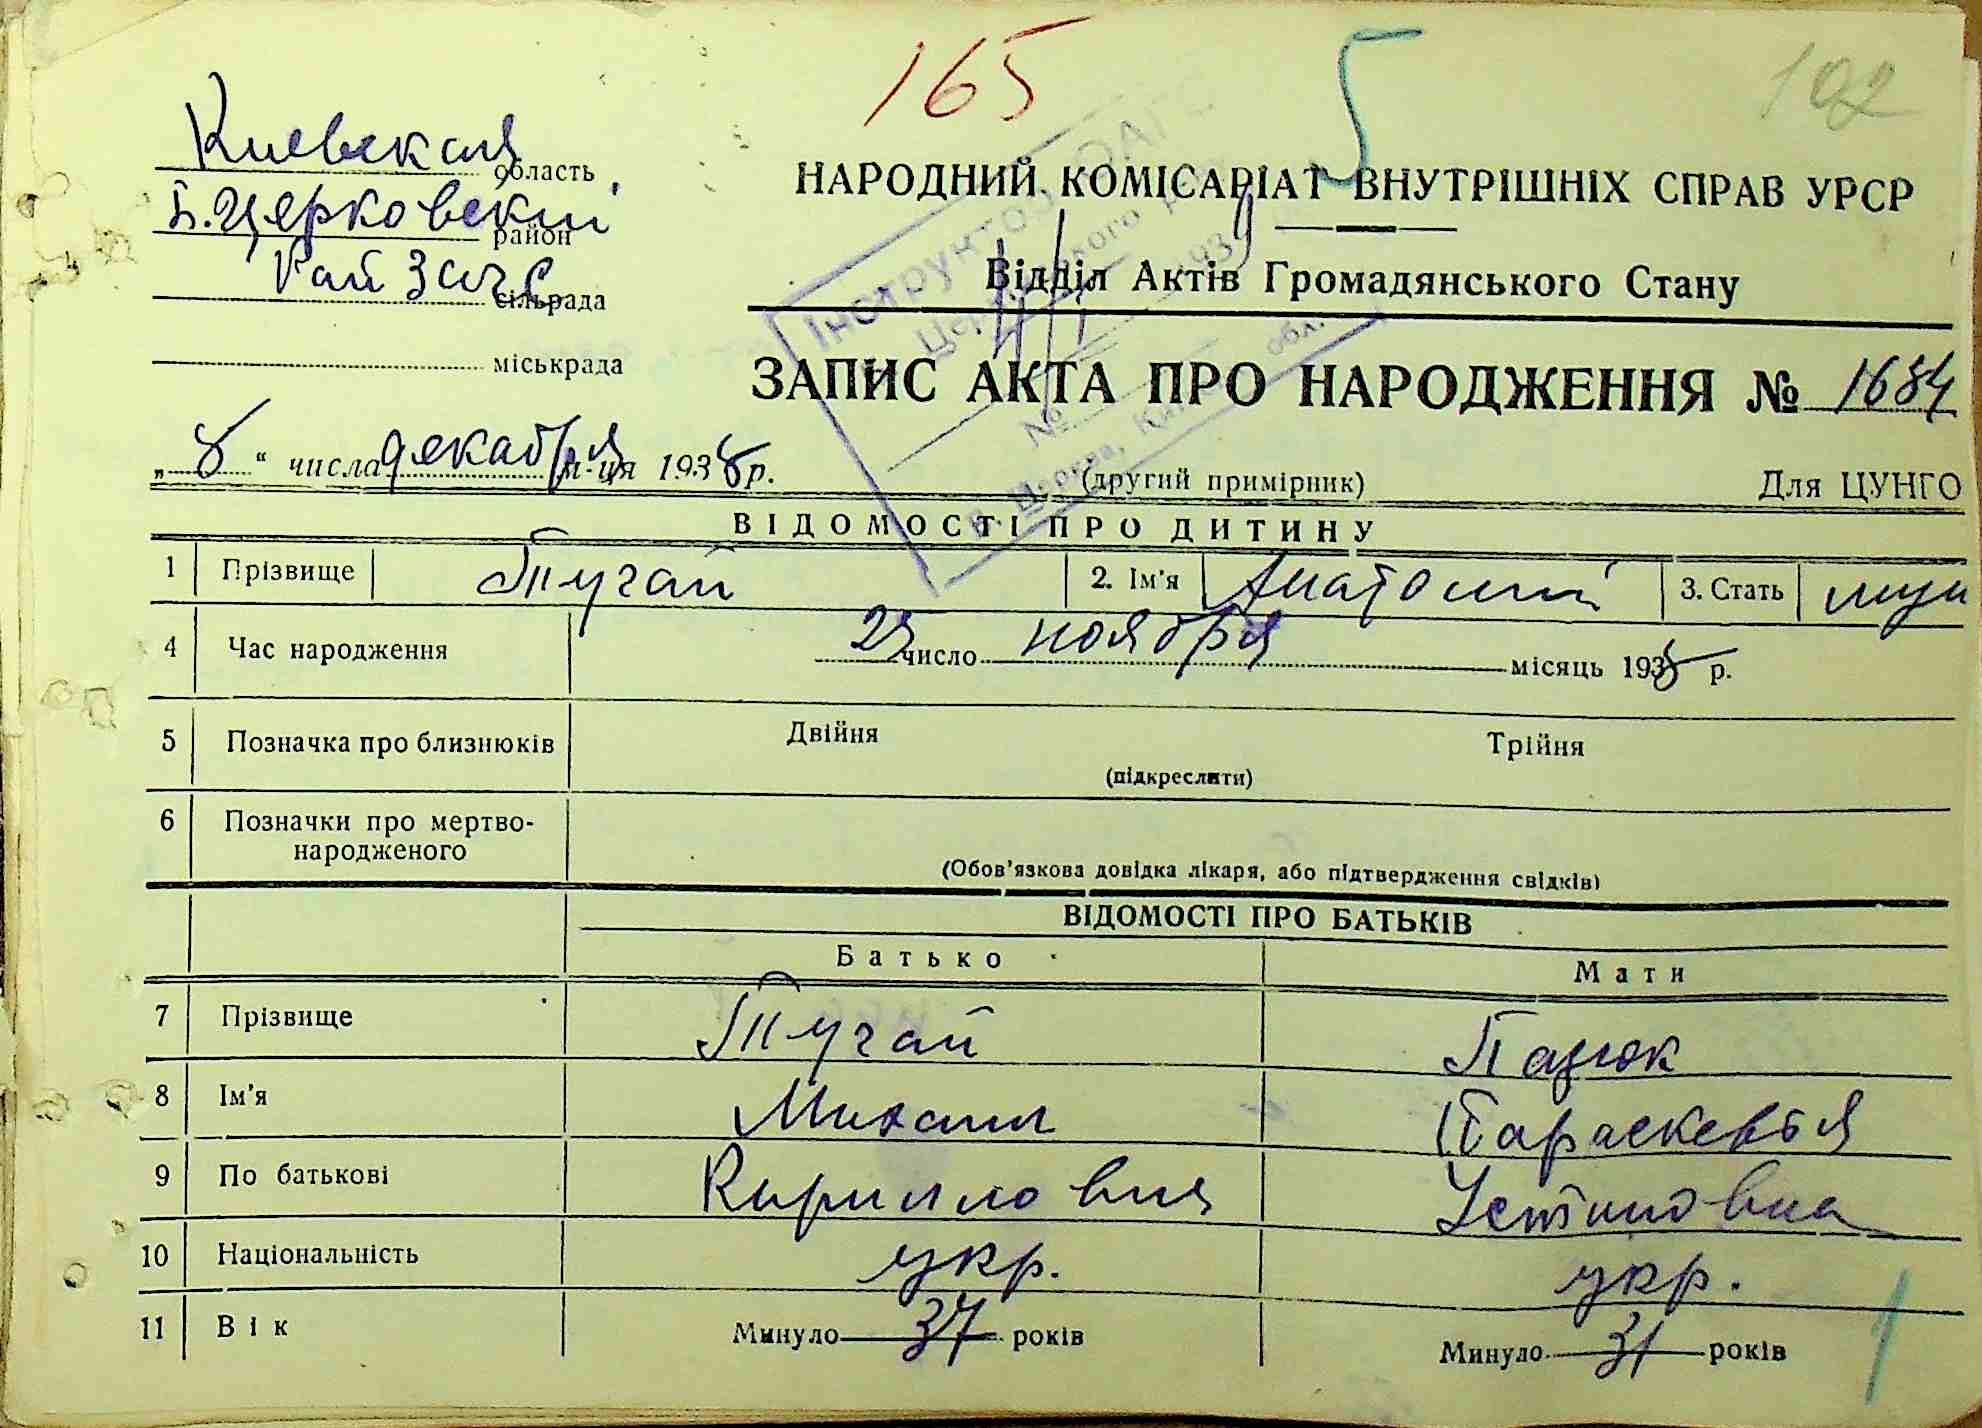 165 5 102
Киевская область
Б.Церковский район
Рай Загс сільрада
міськрада
НАРОДНИЙ КОМІСАРІАТ ВНУТРІШНІХ СПРАВ УРСР
Відділ Актів Громадянського Стану
ЗАПИС АКТА ПРО НАРОДЖЕННЯ № 1684
„8“ числа декабря м-ця 1938 р.
(другий примірник) Для ЦУНГО
ВІДОМОСТІ ПРО ДИТИНУ
1 Прізвище Тугай 2. Ім'я Анатолий 3. Стать муж
4 Час народження число ноября місяць 1938 р.
5 Позначка про близнюків Двійня Трійня
(підкреслити)
6 Позначки про мертво-
народженого
(Обов'язкова довідка лікаря, або підтвердження свідків)
ВІДОМОСТІ ПРО БАТЬКІВ
Батько Мати
7 Прізвище Тугай Пацюк
8 Ім'я Михаил Параскевья
9 По батькові Кириллович Устиновна
10 Національність укр. укр.
11 Вік Минуло 37 років Минуло 31 років